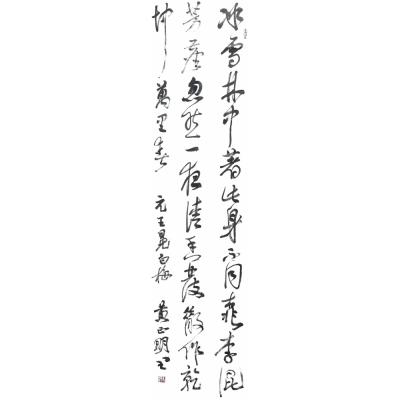 冰雪林中著此身不同桃李混
芳塵忽然一夜清香發散作乾
坤萬里春 元王冕白梅 黄正明書